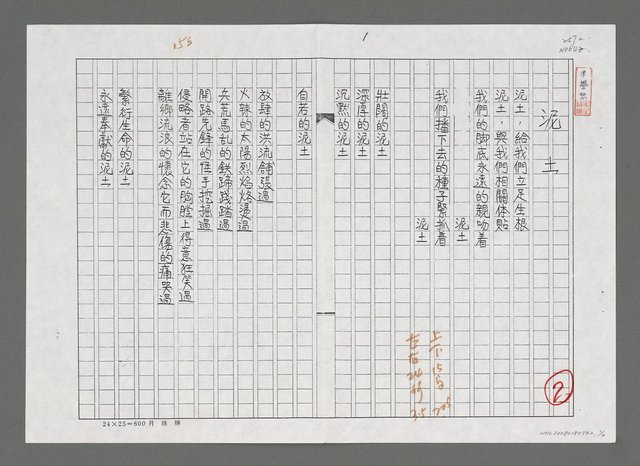 1
2572.
泥土
泥土，給我們立足生根
泥土，與我們相關体貼
我們的脚底永遠的親吻着
泥土
我們播下去的種子緊扒着
泥土
壯闊的泥土
深厚的泥土
沉默的泥土
自若的泥土
放肆的洪流舖張過
火辣的太陽烈焰烙燙過
兵荒馬乱的鉄蹄踐踏過
開路先鋒的怪手挖掘過
侵略者站在它的胸膛上得意狂笑過
離鄉流浪的懷念它而悲傷的痛哭過
繁衍生命的泥土
永遠奉献的泥土
上下15
左右24
3.5
②
155
24×25=600月球牌